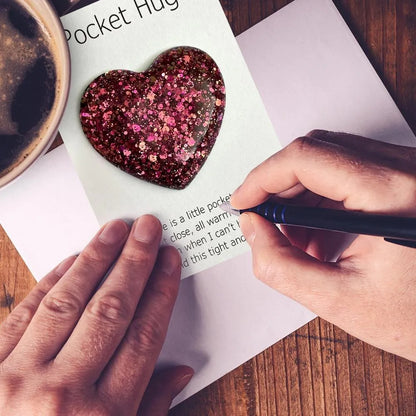 Pocket Hug
is a little pocket
close, all warm
when I can't
this tight and